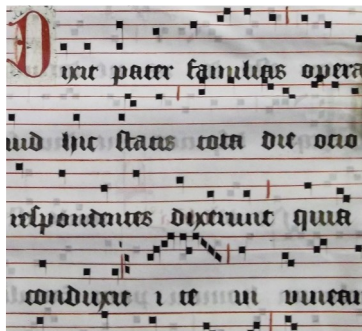 Dixit pater familias opera
uid hic statis tota die ocio
respondentes dixerunt quia
conduxit ite in vineam